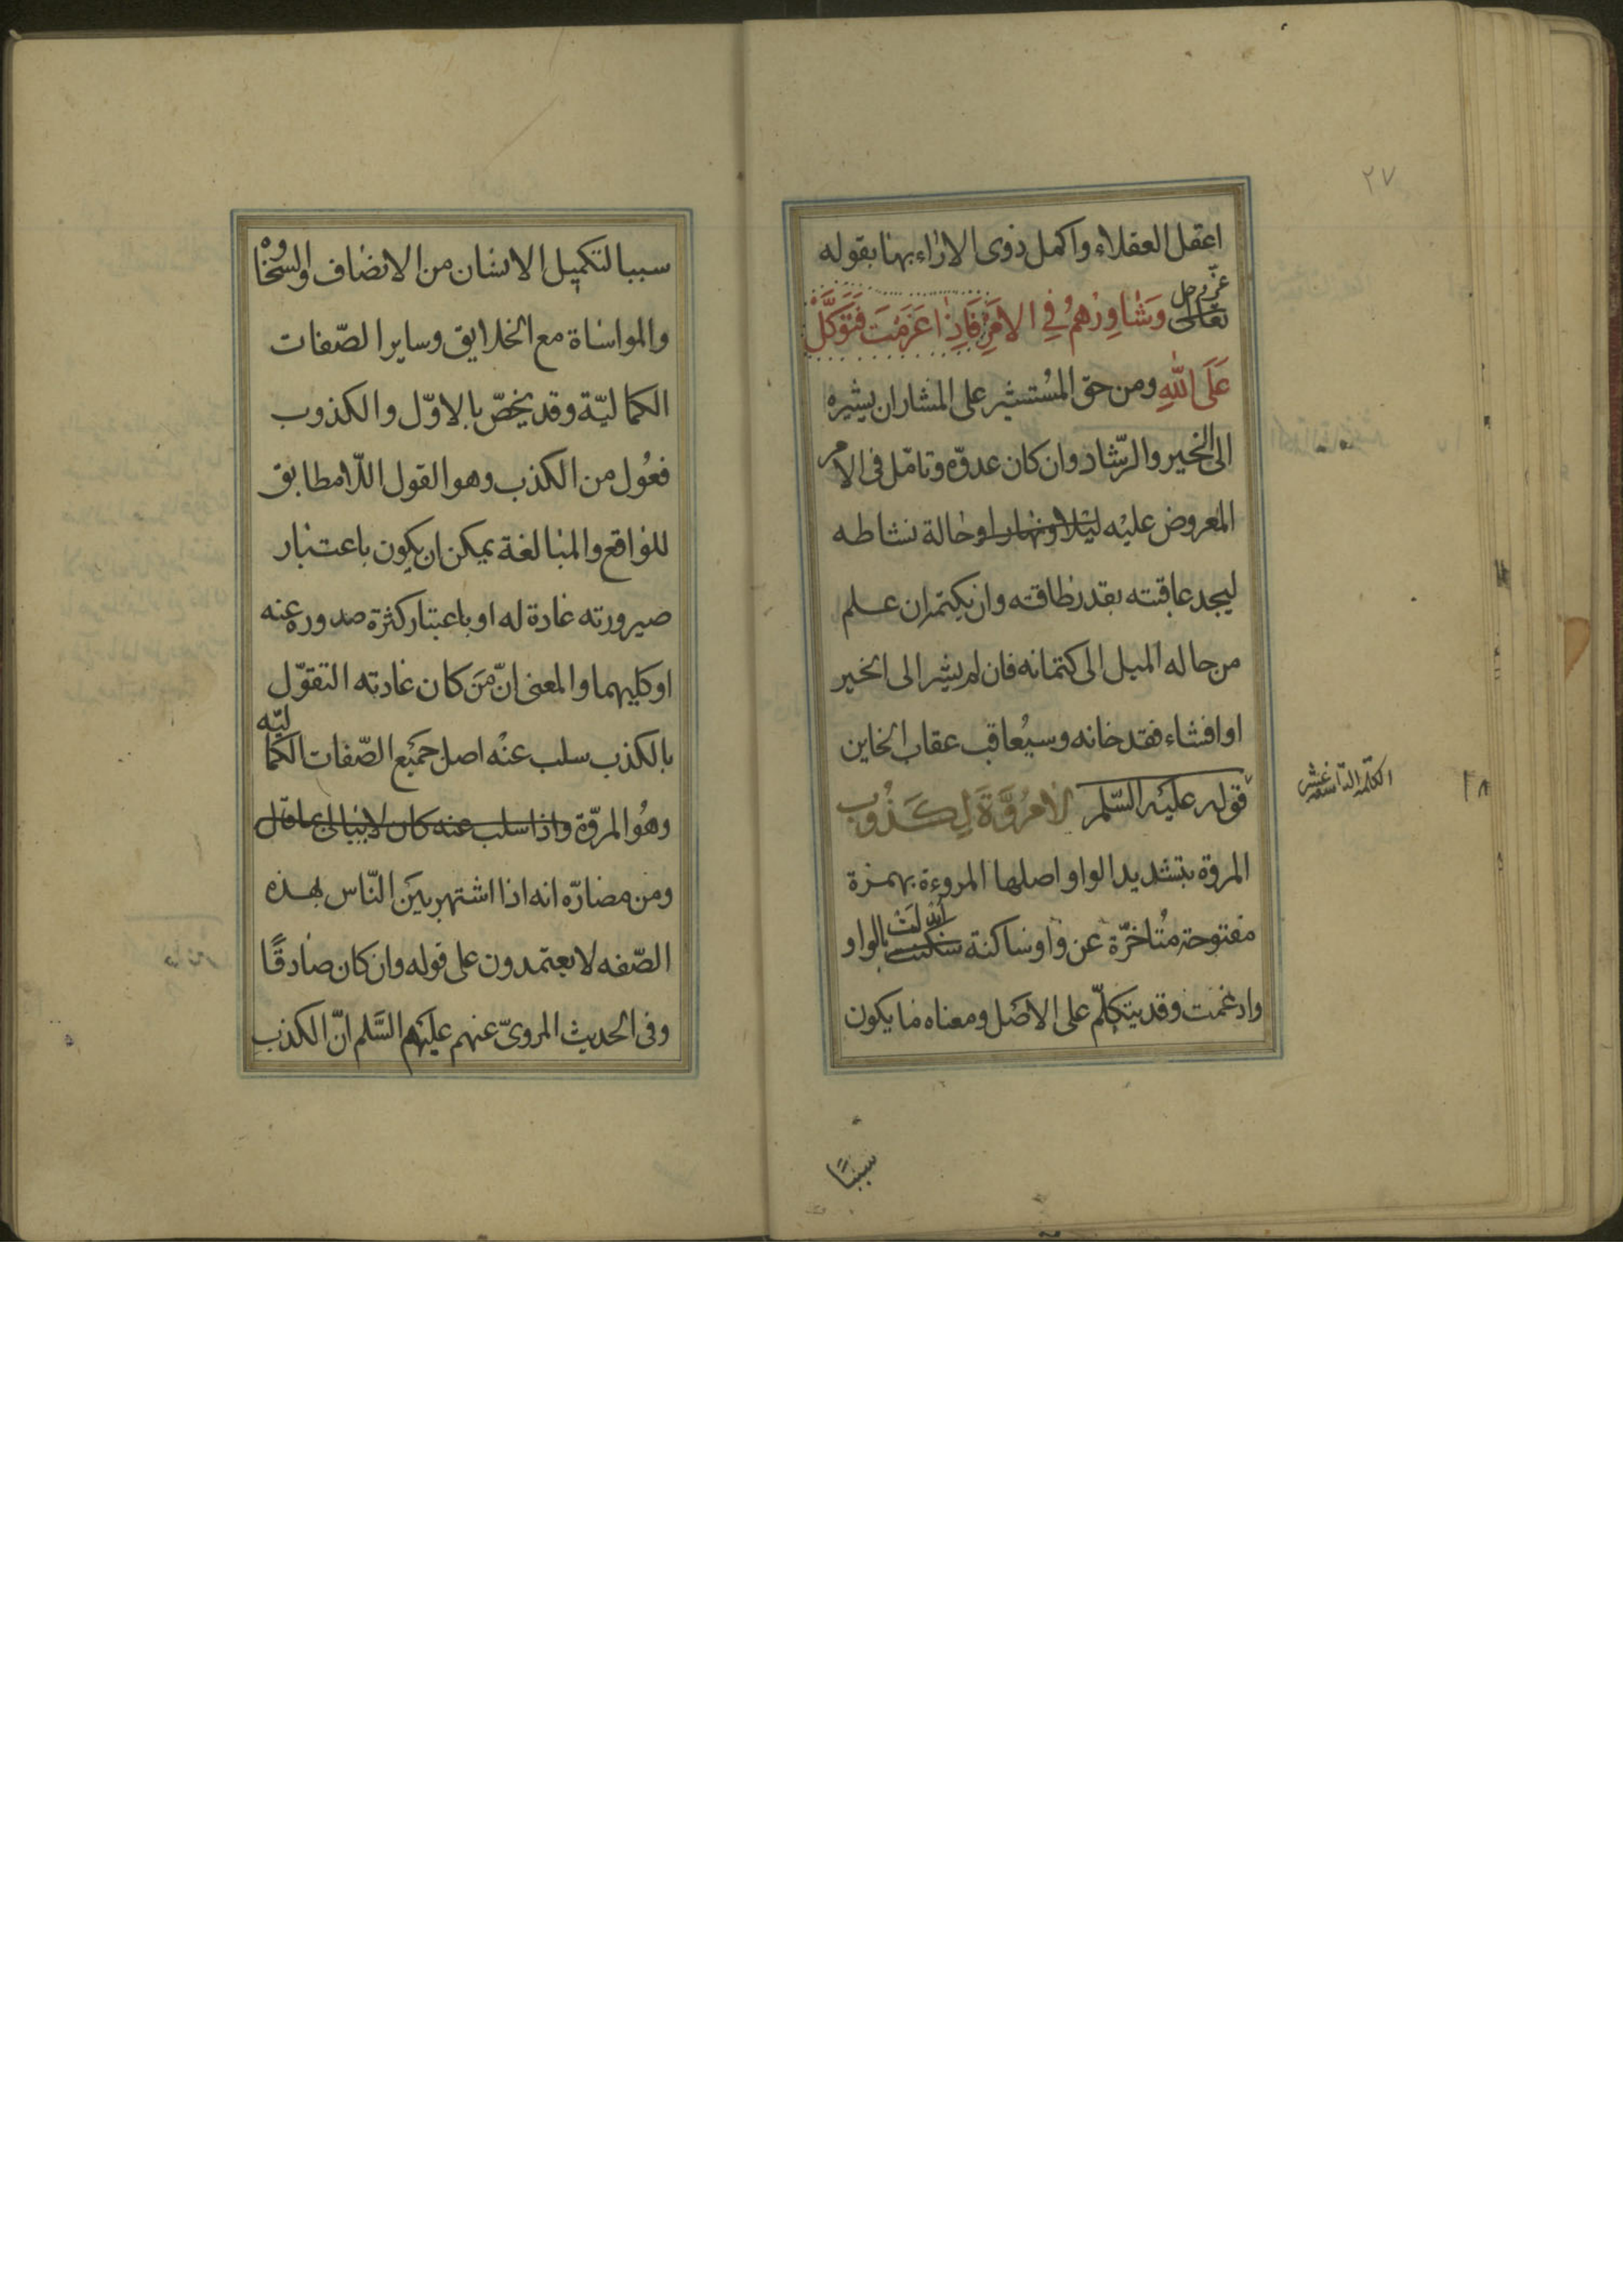 ٢٧
اعقل العقلاء واكمل ذوى الاراء بها بقوله
عزّ وجل
تعالى وَشٰاوِرْهُمْ فِي الاَمْرِ فَاِذٰا عَزَمْتَ فَتَوَكَّلْ
عَلَى اللّٰهِ ومن حق المُستشير على المشار ان يشيره
الى الخير والرّشاد وان كان عدوّه وتامّل فى الامر
المعروض عليه ليلا ونهارا وحالة نشاطه
ليجد عاقبته بقدر طاقته وان يكتم ان علم
من حاله الميل الى كتمانه فان لم يشر الى الخير
او افشاء فقد خانه وسيُعاقب عقاب الخاين
قوله عليه السّلم لامُرُوَّةَ لِكَذُوبٍ
الكلمة التاسعة عشر
١٨
المروّة بتشديد الواو اصلها المروءة بهمزة
مفتوحة متُاخرّة عن واو ساكنة سكنت بالواو
أبدلت
وادغمت وقد يتكلّم على الاصل ومعناه ما يكون
سببًا
سببا لتكميل الانسان من الانصاف والسخاوة
والمواساة مع الخلايق وساير الصّفات
الكماليّة وقد يخصّ بالاوّل والكذوب
فعُول من الكذب وهو القول اللامطابق
للواقع والمبالغة يمكن ان يكون باعتبار
صيرورته عادة له او باعتبار كثرة صدوره عنه
او كليهما والمعنى انّ مَن كان عادته التقوّل
بالكذب سلب عنه اصل جميع الصّفات الكماليّه
وهُو المروّة واذا سلب عنه كان لا يبالى بما قال
ومن مضارّه انه اذا اشتهر بين النّاس بهذه
الصّفه لا يعتمدون على قوله وان كان صادقًا
وفى الحديث المروىّ عنهم عليهم السَّلم انّ الكذب